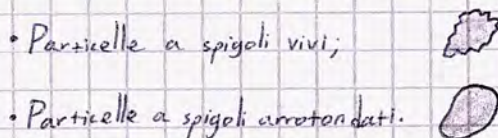 • Particelle a spigoli vivi;
• Particelle a spigoli arrotondati.